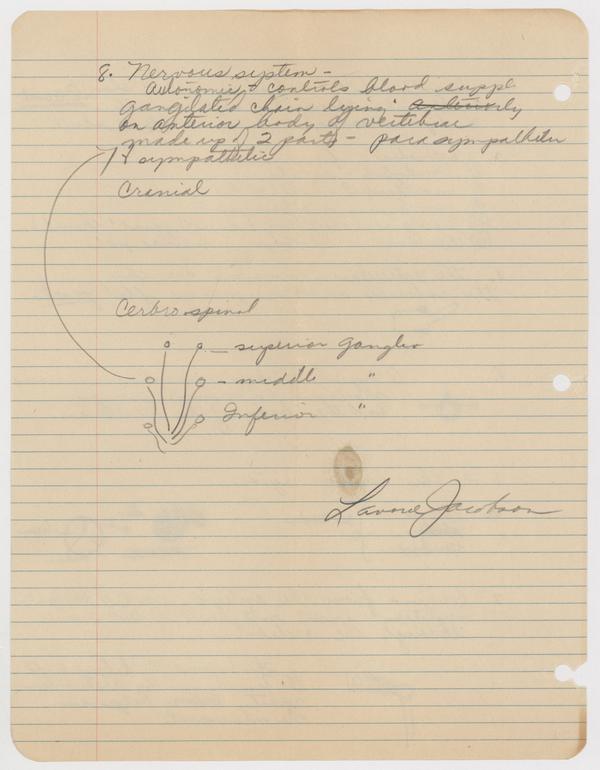 8. Nervous system -
Autonomic - controls blood suppl
gangliated chain lying anteriorly
on anterior body of vertebrae
made up of 2 parts - parasympathetic
& sympathetic
Cranial
Cerbro spinal
- superior ganglia
- middle "
Inferior "
Lavone Jacobson